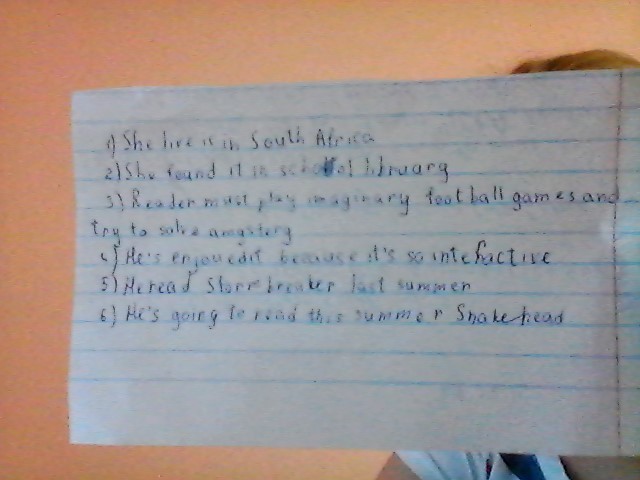 1) She live is in South Africa
2) She found it in school libruary
3) Reader must play imaginary football games and
try to solve amystery
4) He's enjouedit because it's so intefactive
5) He read Stormbreaker last summer
6) He's going to read this summer Snakehead